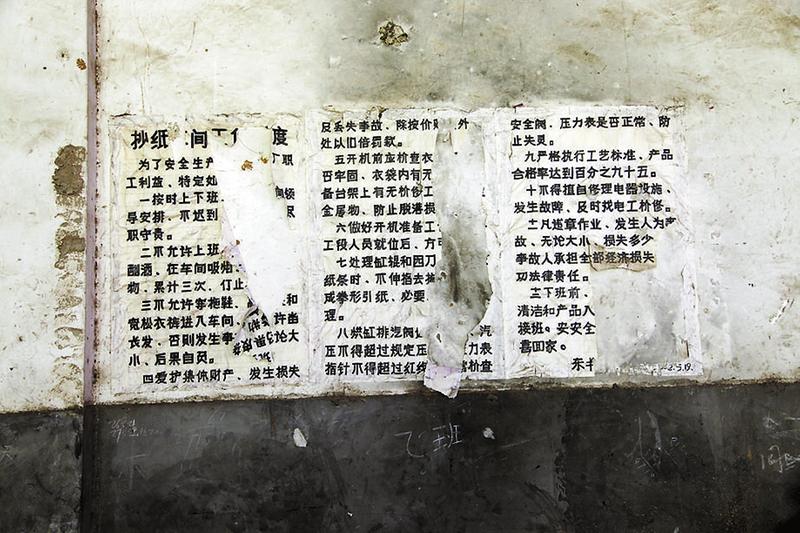 抄纸 间工 度
为了安全生产 职
工利益、特定如
一按时上下班 领
导安排、不迟到
职守责。
二不允许上班
酗酒、在车间吸烟
物、累计三次、
三不允许穿拖鞋 和
宽松衣裤进入车间、 许留
长发、否则发生事 论大
小、后果自负。
四爱护集体财产、发生损失
及丢失事故、除按价 外
处以旧倍罚款。
五开机前应检查衣
否牢固、衣袋内有无
备台架上有无检修工
金属物、防止脱港损
六做好开机准备工
工段人员就位后、方
七处理缸辊和四刀
纸条时、不伸指去
或拳形引纸、必要
理。
八烘缸排汽阀 汽
压不得超过规定压 力表
指针不得超过红线 检查
安全阀、压力表是否正常、防
止失灵。
九严格执行工艺标准、产品
合格率达到百分之九十五。
十不得擅自修理电器设施、
发生故障、及时找电工检修。
十一凡违章作业、发生人为事
故、无论大小 损失多少
事故人承担全部经济损失
切法律责任。
十二下班前、
清洁和产品入
接班。安安全
喜回家。
2.5.19.
乙班